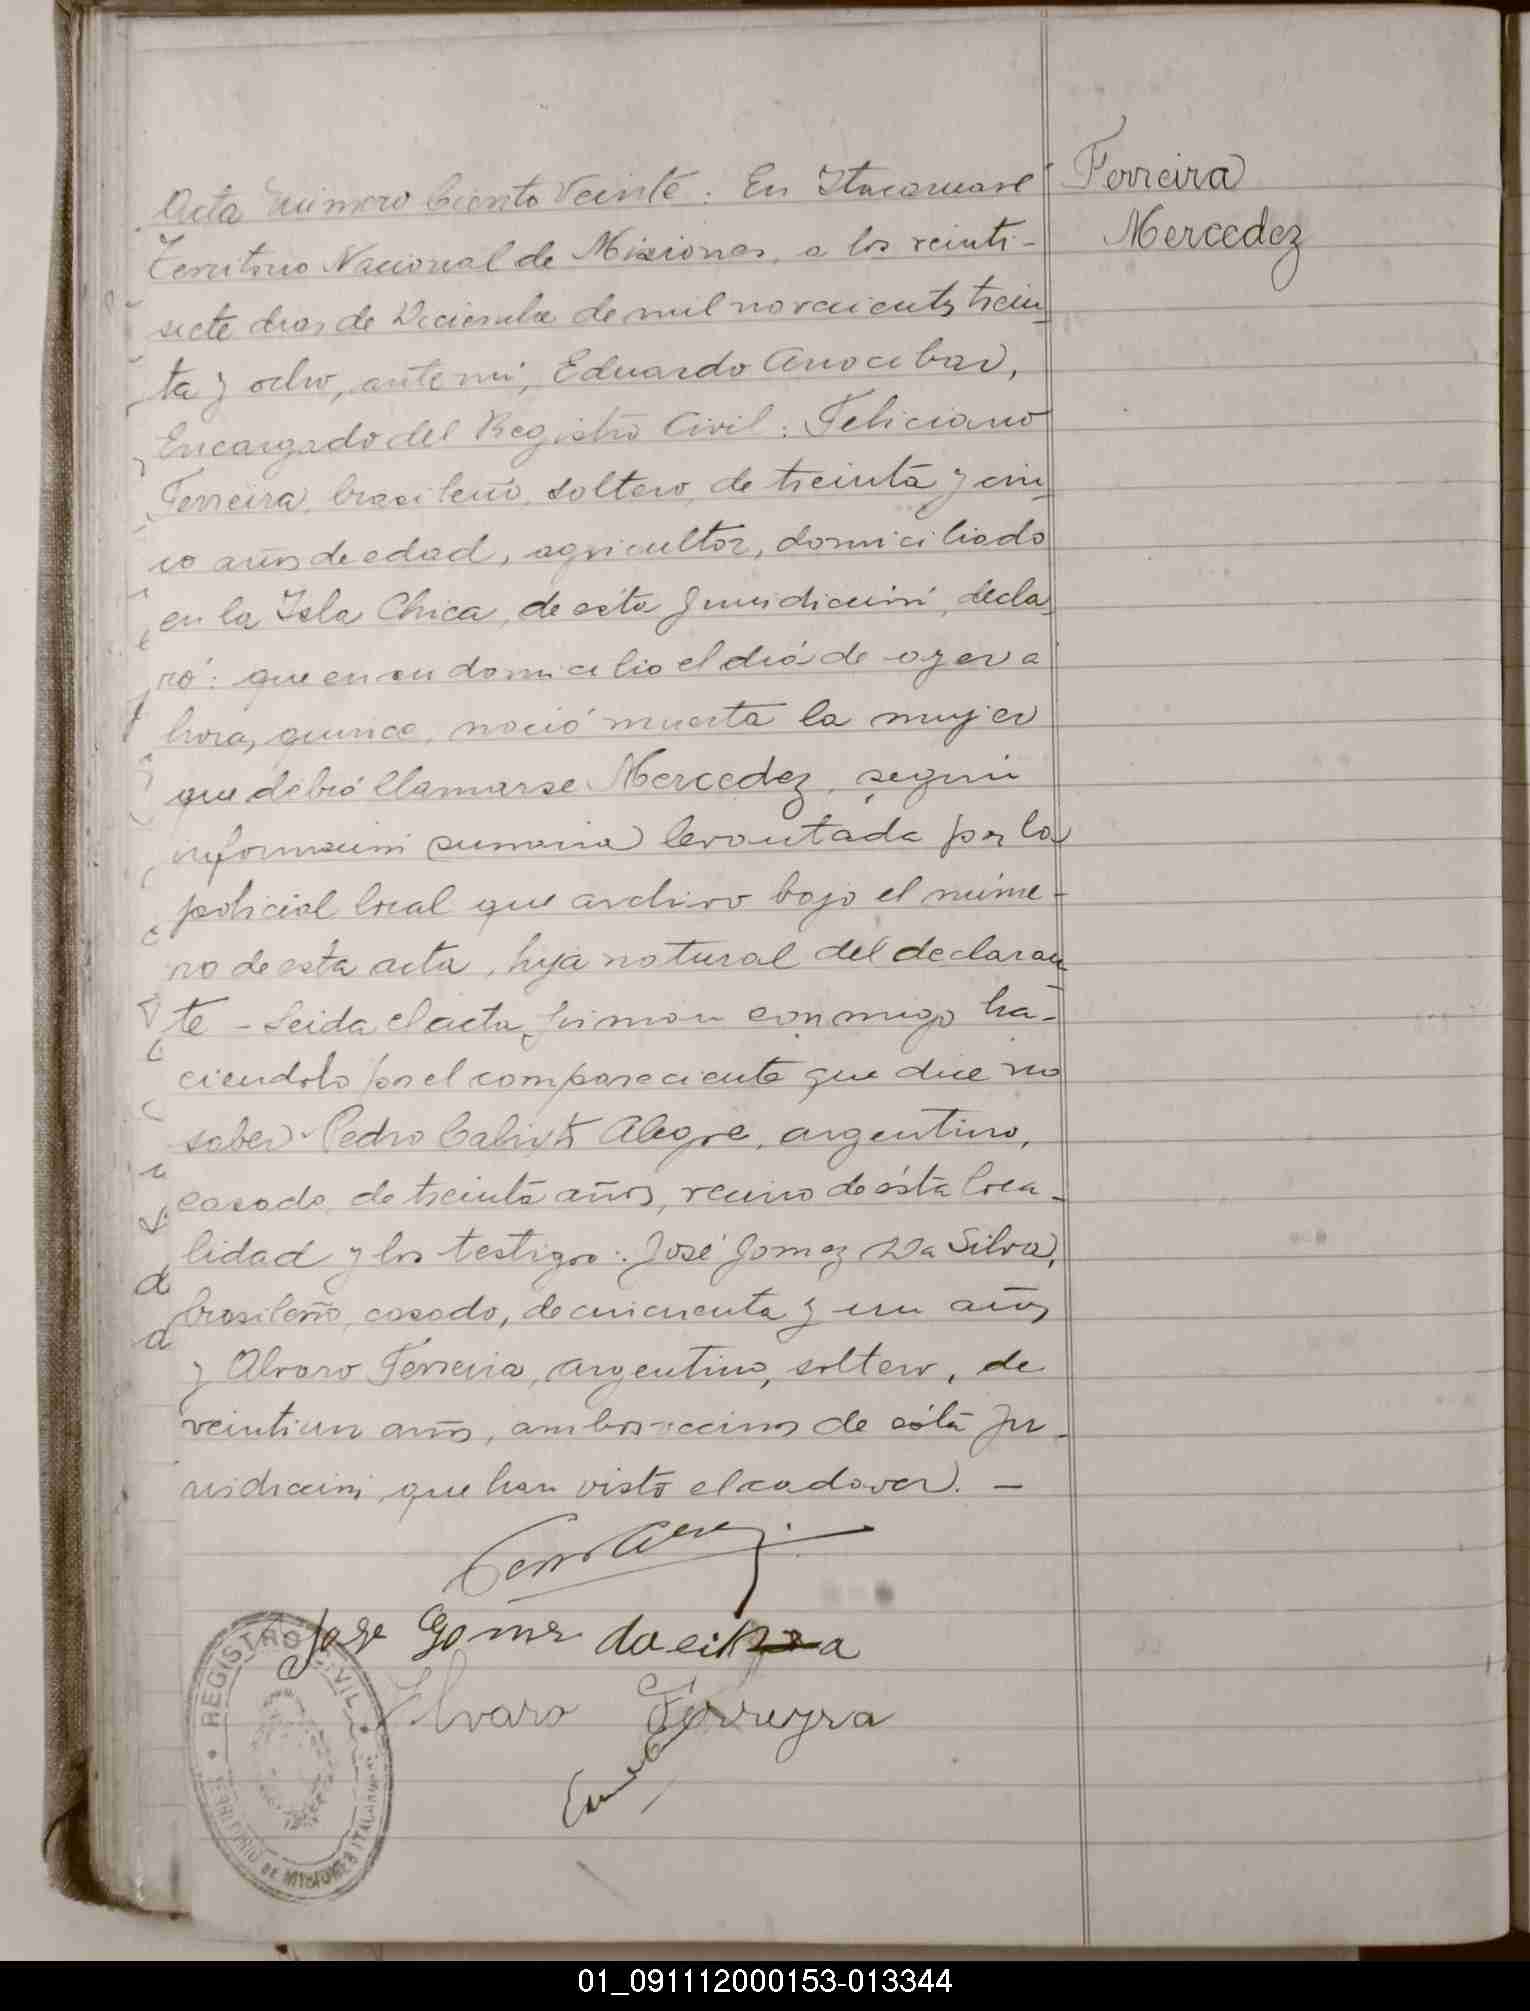 Ferreira
Mercedez
Acta número Ciento Veinte: En Itacaruaré
Territorio Nacional de Misiones, a los veinti-
siete dias de Diciembre de mil novecientos trein-
ta y ocho, ante mi, Eduardo Arrocebar,
Encargado del Registro Civil: Feliciano
Ferreira, brasileño, soltero, de treinta y cin-
co años de edad, agricultor, domiciliado
en la Isla Chica, de ésta Jurisdicción, decla-
ró: que en su domicilio el dia de ayer a
horas quince, nació muerta la mujer
que debió llamarse Mercedez, según
información sumaria levantada por la
policial local que archivo bajo el núme-
ro de esta acta, hija natural del declaran-
te - Leida el acta, firman conmigo ha-
ciendolo por el compareciente que dice no
saber Pedro Calixto Alegre, argentino,
casado, de treinta años, vecino de ésta loca-
lidad y los testigos: José Gomez Da Silva,
brasileño, casado, de cincuenta y un años
y Alvaro Ferreira, argentino, soltero, de
veintiun años, ambos vecinos de ésta ju-
risdicción, que han visto el cadaver. —
Jose Gomes da
Alvaro Ferreyra
REGISTRO CIVIL
TERRITORIO DE MISIONES ITACARUARE
01_091112000153-013344